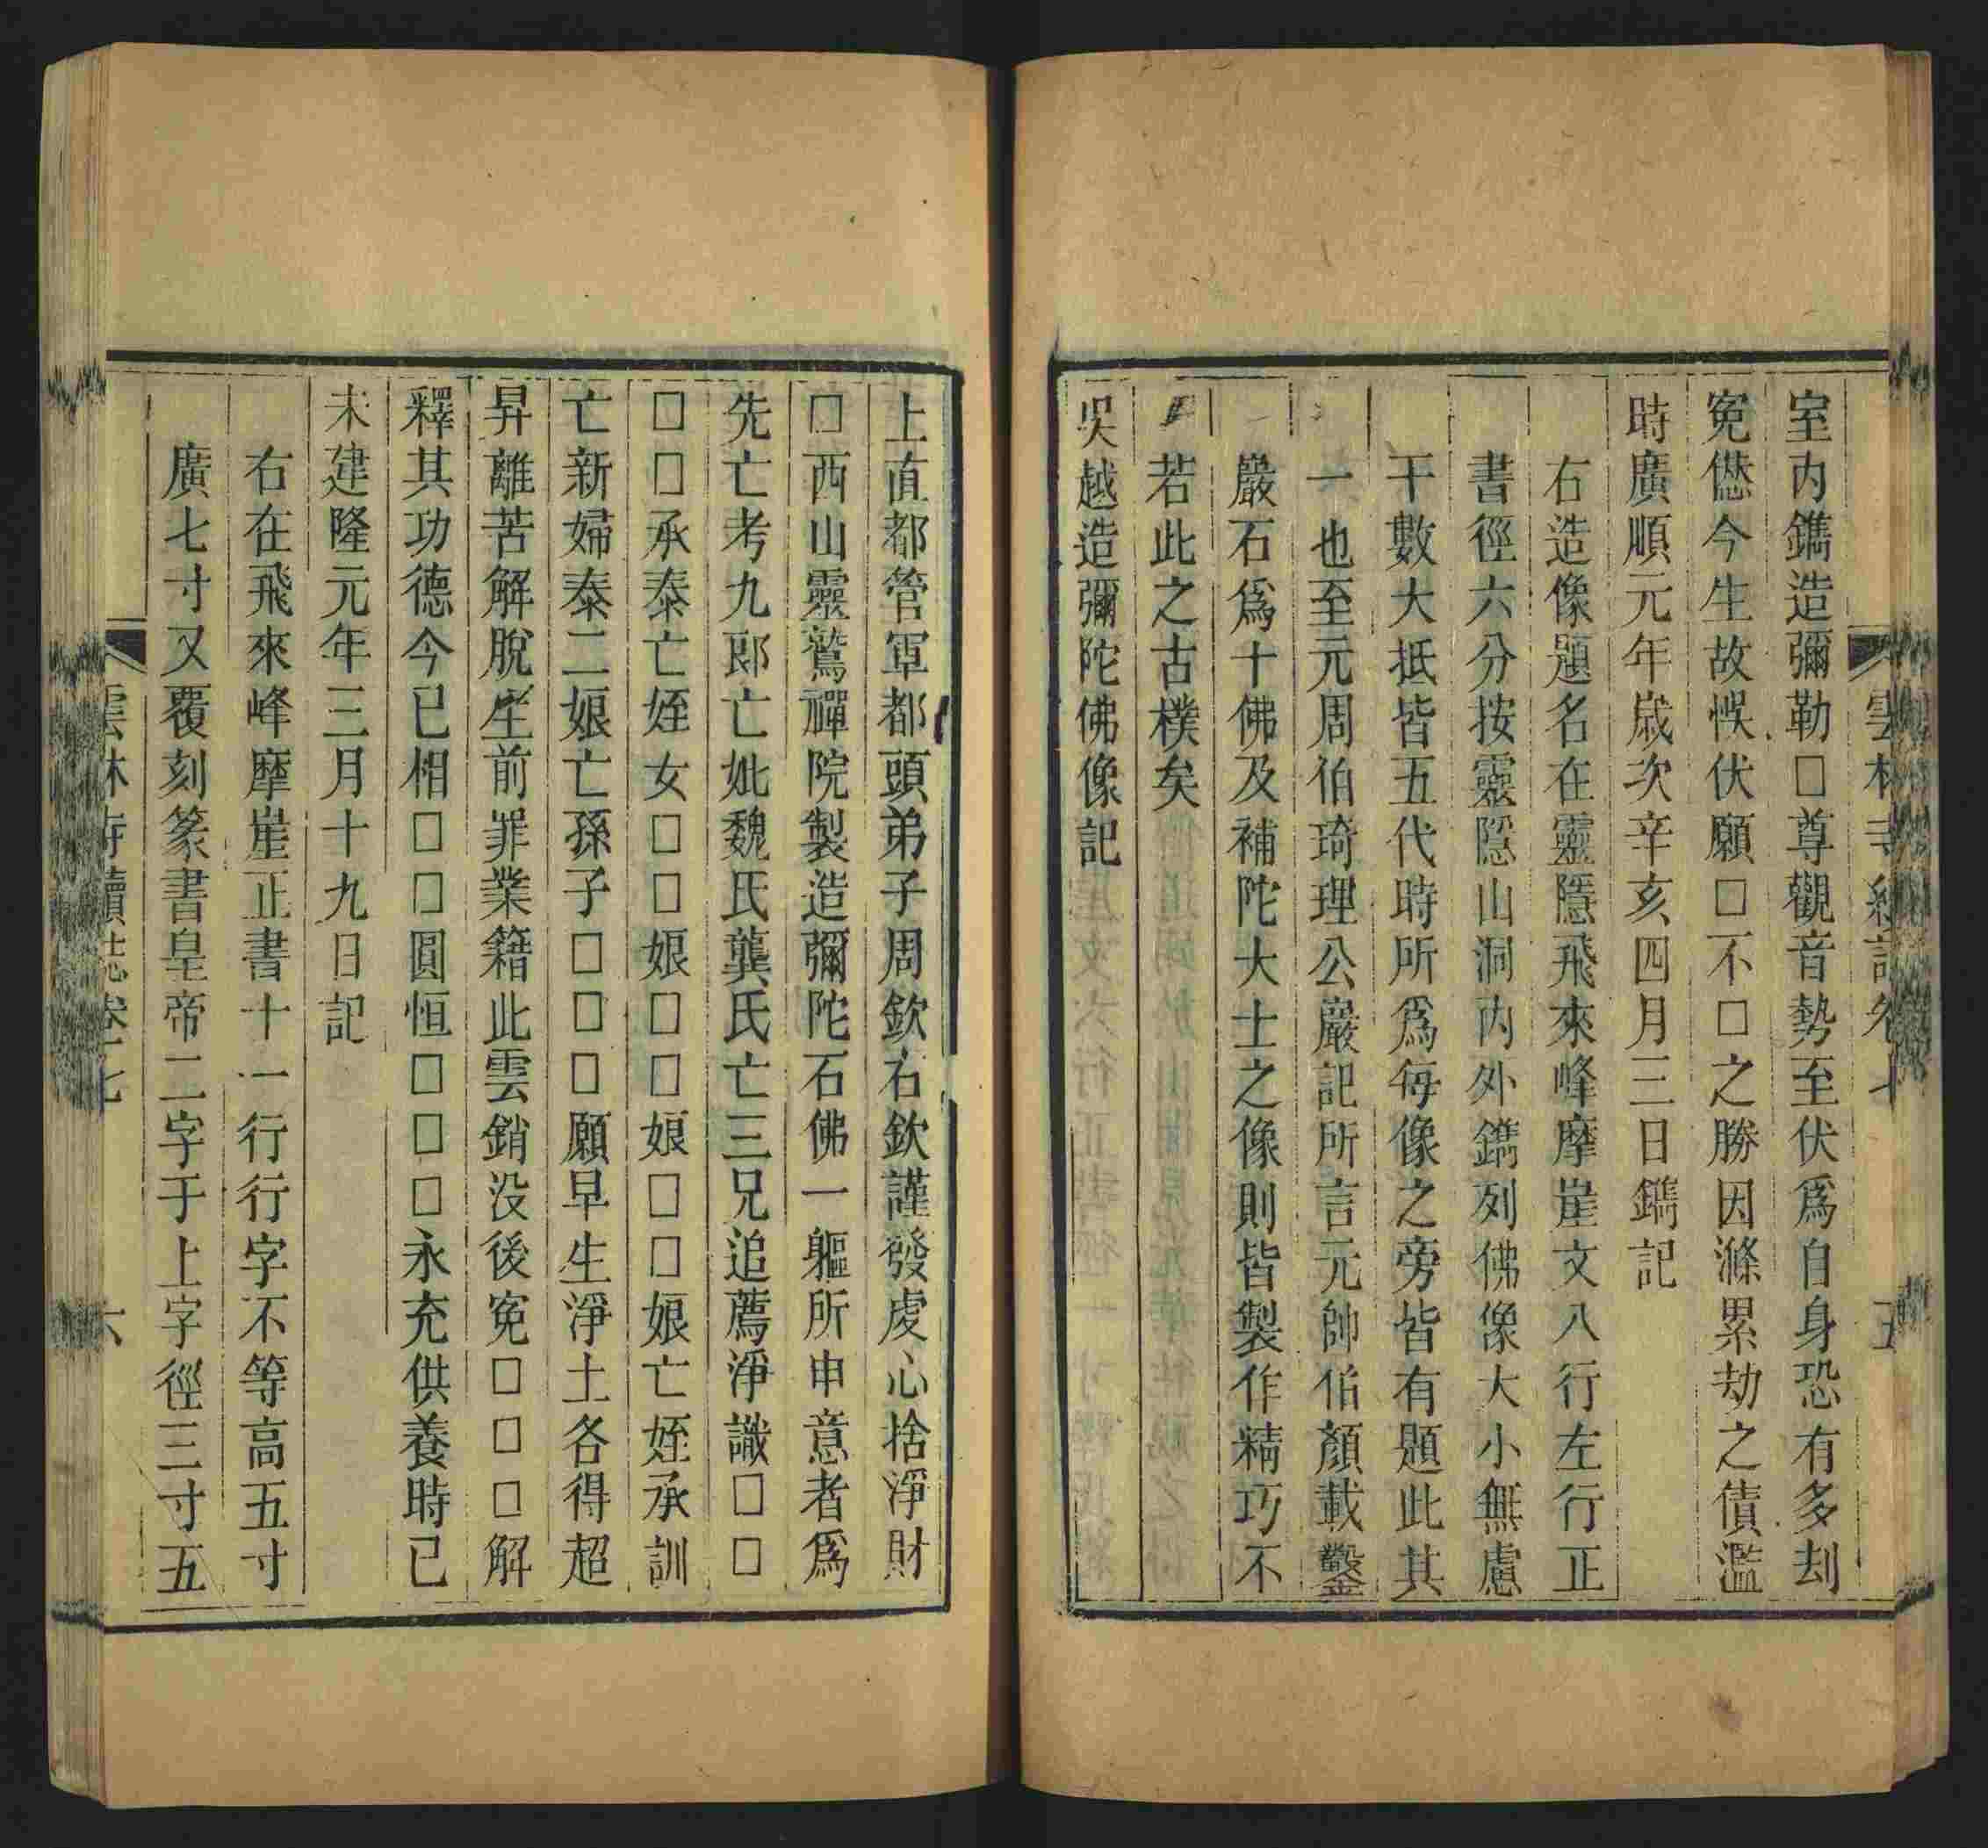 雲林寺續誌卷七 五
室内鐫造彌勒□尊觀音勢至伏爲自身恐有多刦
寃僽今生故悞伏願□不□之勝因滌累劫之債濫
時廣順元年歲次辛亥四月三日鐫記
右造像題名在靈隱飛來峰摩崖文八行左行正
書徑六分按靈隱山洞内外鐫列佛像大小無慮
干數大抵皆五代時所爲每像之旁皆有題此其
一也至元周伯琦理公巖記所言元帥伯顏載鑿
巖石爲十佛及補陀大士之像則皆製作精巧不
若此之古樸矣
吳越造彌陀佛像記
上直都管軍都頭弟子周欽右欽謹發虔心捨淨財
□西山靈鷲禪院製造彌陀石佛一軀所申意者爲
先亡考九郎亡妣魏氏龔氏亡三兄追薦淨識□□
□□承泰亡姪女□□娘□□娘□□娘亡姪承訓
亡新婦泰二娘亡孫子□□□願早生淨土各得超
昇離苦解脫生前罪業籍此雲銷没後寃□□□解
釋其功德今已相□□圓恒□□□永充供養時已
未建隆元年三月十九日記
右在飛來峰摩崖正書十一行行字不等高五寸
廣七寸又覆刻篆書皇帝二字于上字徑三寸五
雲林寺續誌卷七 六